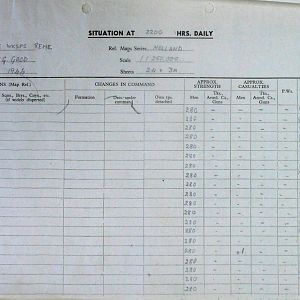 SITUATION AT 2200 HRS. DAILY
WKSPS REME
Ref. Maps Series HOLLAND
Scale 1:250,000
1944
Sheets 2A & 3A
(Map Ref.)
CHANGES IN COMMAND
APPROX. STRENGTH
APPROX. CASUALTIES
P.Ws.
Sqns., Btys., Coys., etc. (if widely dispersed)
Formation
Own under command
Own tps. detached
Men
Tks., Armd. Cs., Guns
Men
Tks., Armd. Cs., Guns
280
280
280
280
280
280
280
280
280
280
280
280
280
280
280
280
280
280
280